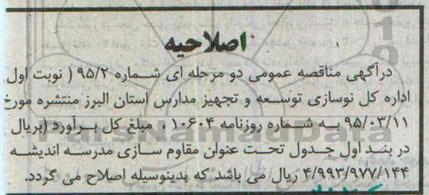 اصلاحیه
درآگهی مناقصه عمومی دو مرحله ای شماره ۹۵/۲ ( نوبت اول
اداره کل نوسازی توسعه و تجهیز مدارس استان البرز منتشره مورخ
۹۵/۰۳/۱۱ به شماره روزنامه ۱۰۶۰۴ ، مبلغ کل برآورد (بریال
در بند اول جدول تحت عنوان مقاوم سازی مدرسه اندیشه
۴/۹۹۳/۹۷۷/۱۴۴ ریال می باشد که بدینوسیله اصلاح می گردد.